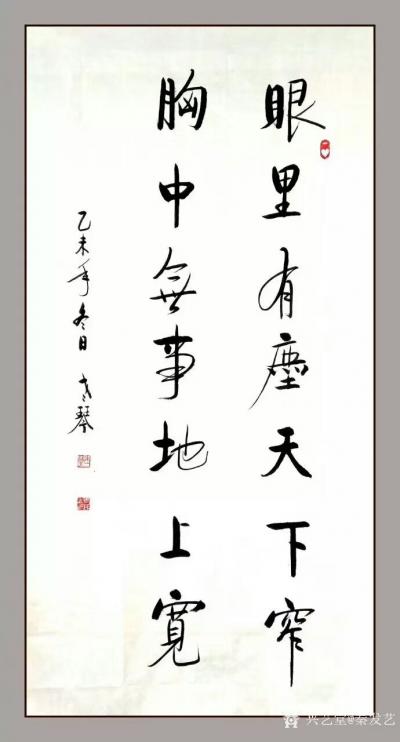 眼里有塵天下窄
胸中無事地上寬
乙未年冬日
琴
兴艺堂@秦发艺